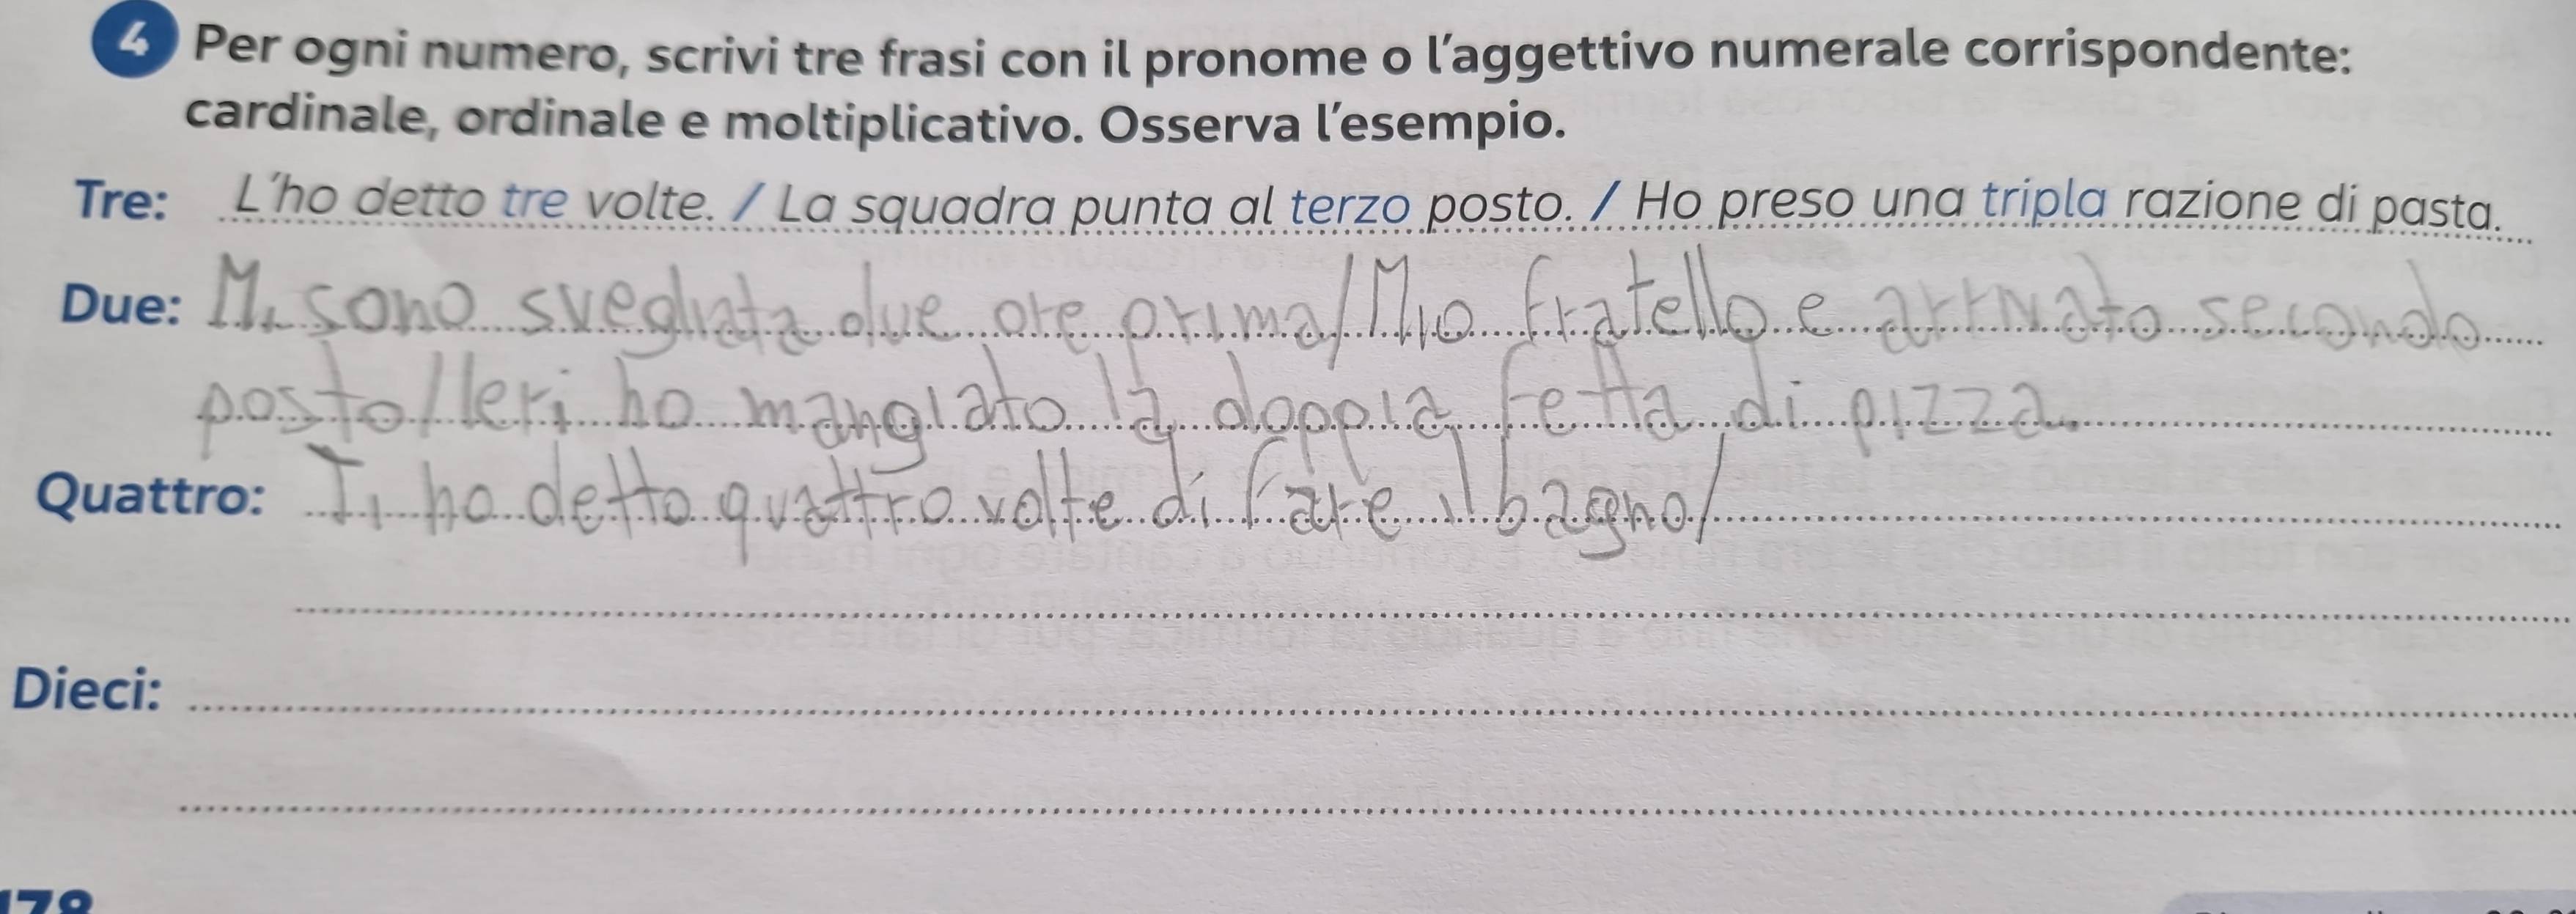 4 Per ogni numero, scrivi tre frasi con il pronome o l'aggettivo numerale corrispondente:
cardinale, ordinale e moltiplicativo. Osserva l'esempio.
Tre: L'ho detto tre volte. / La squadra punta al terzo posto. / Ho preso una tripla razione di pasta.
Due: Mi sono svegliata due ore prima/Mio fratello e arrivato secondo
posto/Ieri ho mangiato la doppia fetta di pizza.
Quattro: Ti ho detto quattro volte di fare il bagno/
Dieci:
178